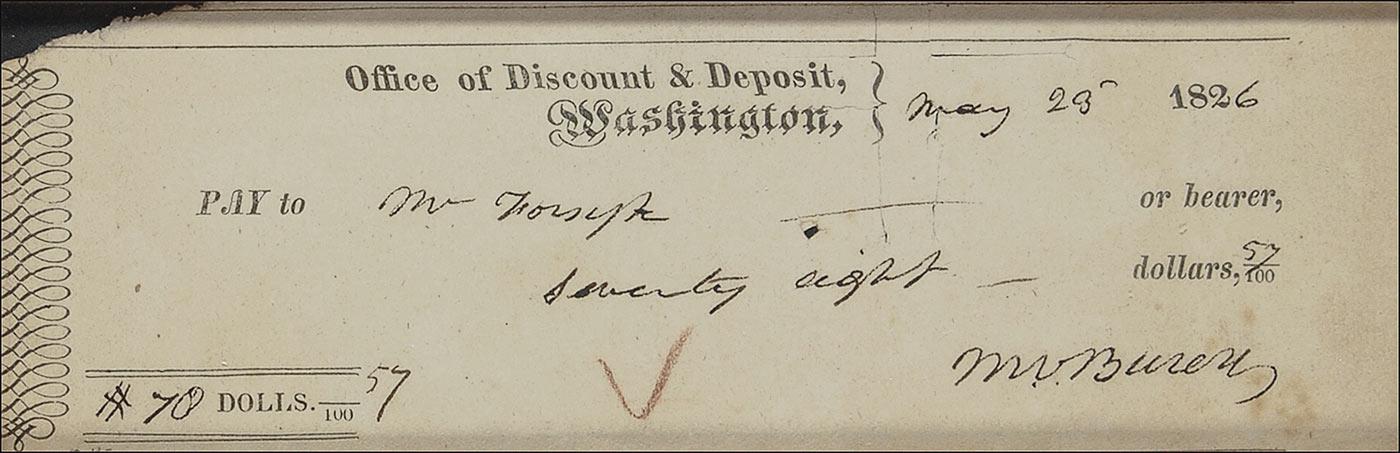 Office of Discount & Deposit,
Washington, } May 25 1826
PAY to Mr Forsyth or bearer,
seventy eight — dollars, 57/100
$ 78 DOLLS. 57/100
M.V.Buren